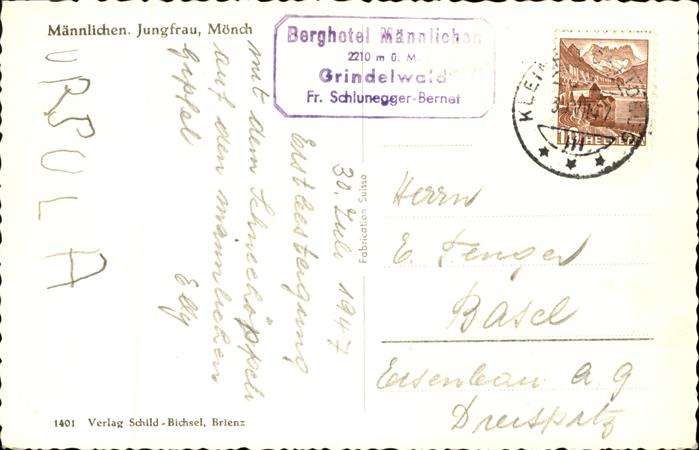 Männlichen. Jungfrau, Mönch
Berghotel Männlichen
2210 m ü. M.
Grindelwald
Fr. Schlunegger-Bernet
KLEINE
HELVETIA
30. Juli 1947
Erstbesteigung
mit dem Schneehöppli
auf den männlichen
Gipfel
Elly
URSULA
Fabrication Suisse
Herrn
E. Fenger
Basel
Eisenbau A. G
Dreispatz
1401 Verlag Schild-Bichsel, Brienz